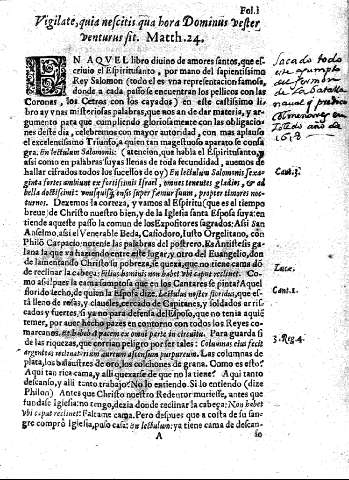 Fol. I
Vigilate, quia nescitis qua hora Dominus vester
venturus sit. Matth. 24.
EN AQVEL libro divino de amores santos, que es-
crivio el Espiritusanto, por mano del sapientissimo
Rey Salomon (todo el es vna representacion famosa,
donde a cada passo se encuentran los pellicos con las
Coronas, los Cetros con los cayados) en este castissimo li
bro ay vnas misteriosas palabras, que nos an de dar materia, y ar-
gumento para que cumpliendo gloriosamente con las obligacio-
nes deste dia, celebremos con mayor autoridad, con mas aplauso
el excelentissimo Triunfo, a quien tan magestuoso aparato se consa
gra. En lectulum Salomonis: (atencion, que habla el Espiritusanto, y
assi como en palabras suyas llenas de toda fecundidad, avemos de
hallar cifrados todos los sucessos de oy) En lectulum Salomonis sexa-
ginta fortes ambiunt ex fortissimis Israel, omnes tenentes gladios, & ad
bella doctissimi: vniuscuiusq; ensis super femur suum, propter timores noc-
turnos. Dexemos la corteza, y vamos al Espiritu (que es el tiempo
breve de Christo nuestro bien, y de la Iglesia santa Esposa suya: en
tiende aqueste passo la comun de los Expositores sagrados: Assi San
Anselmo, assi el Venerable Beda, Casiodoro, Iusto Orgelitano, con
Philõ Carpacio: notenle las palabras del postrero. Es Antistesis ga-
lana la que va haziendo entre este lugar, y otro del Evangelio, don
de lamentando Christo su pobreza, se quexa, que no tiene cama dõ
de reclinar la cabeça: Filius hominis non habet vbi caput reclinet. Co-
mo assi? pues la cama sumptosa que en los Cantares se pinta? Aquel
florido lecho, de quien la Esposa dize. Lectulus noster floridus, que es-
tà lleno de rosas, y claveles, cercado de Capitanes, y soldados arris
cados y fuertes, si ya no para defensa del Esposo, que no tenia aquiẽ
temer, por aver hecho pazes en contorno con todos los Reyes co-
marcanos. & habebat pacem ex omni parte in circuitu. Para guarda si
de las riquezas, que corrian peligro por ser tales: Columnas eius fecit
argenteas, reclinatorium aureum ascensum purpureum. Las columnas de
plata, los balaustres de oro, los colchones de grana. Como es esto?
Aqui tan rica cama, y alli quexarse de que no la tiene? Aqui tanto
descanso, y alli tanto trabajo? No lo entiendo. Si lo entiendo (dize
Philon) Antes que Christo nuestro Redentor muriesse, antes que
fundasse Iglesia: no tengo, dezia donde reclinar la cabeça: Non habet
vbi caput reclinet: Faltame cama. Pero despues que a costa de su san-
gre comprò Iglesia, puso casa: ya tiene cama de descan-
A
so
Sacado todo
este asumpto
del sermon
de la batalla
naval q̃ predico
en Toledo año de
1618
Cant. 3.
Lucæ.
Cant. 1.
3. Reg. 4.